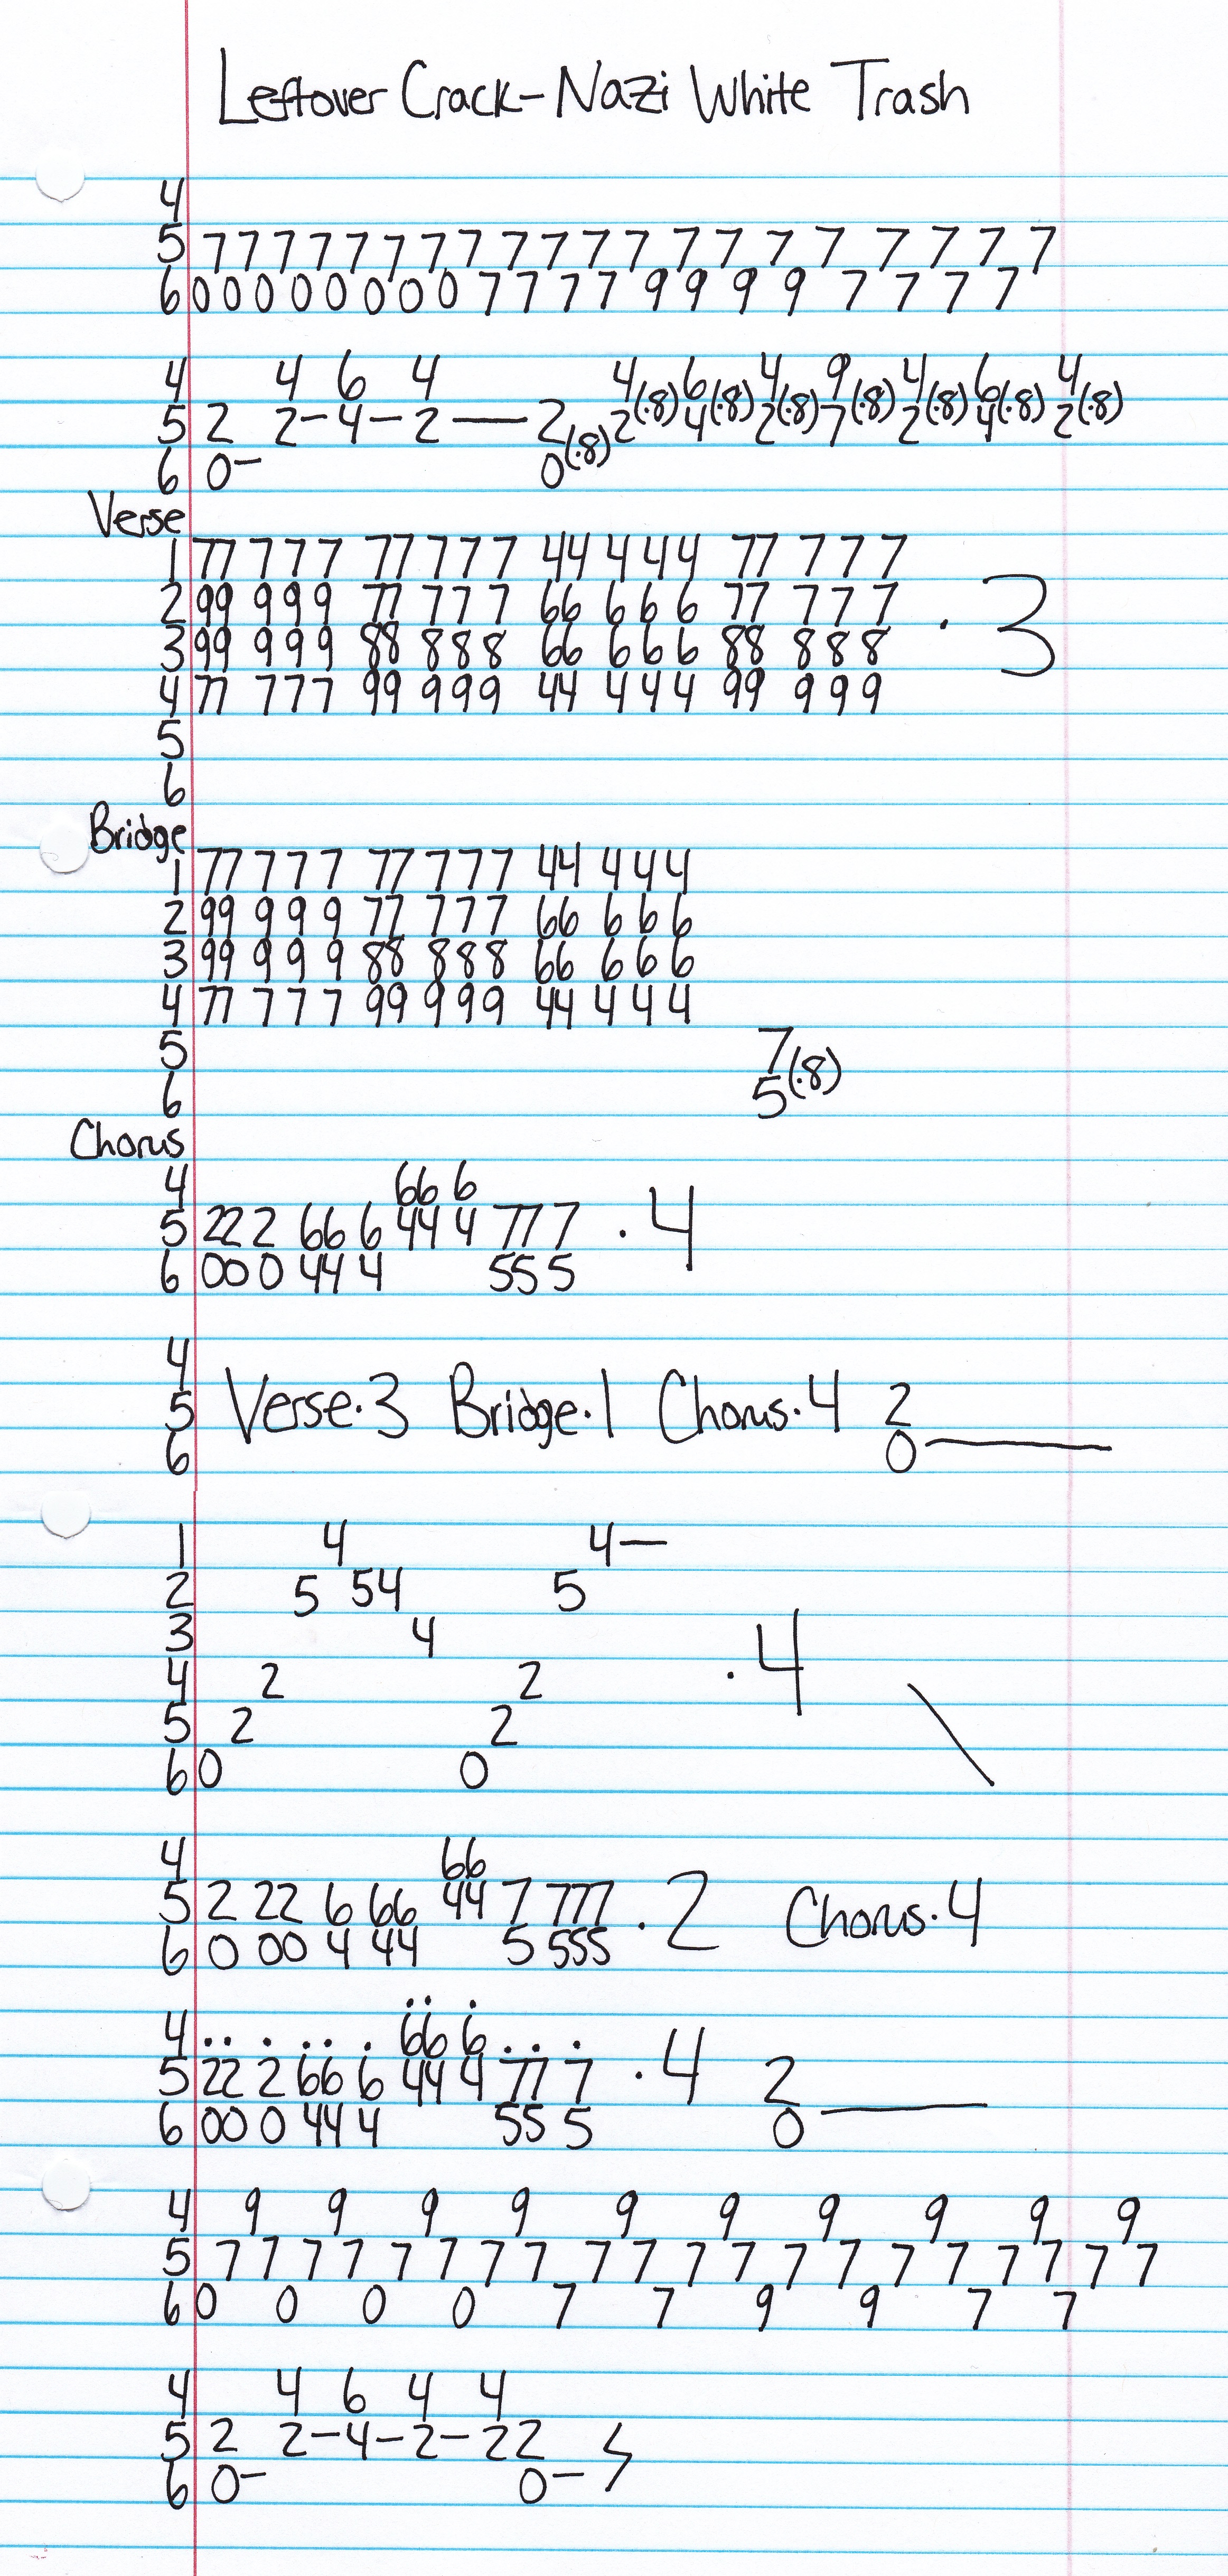 Leftover Crack-Nazi White Trash
4
5 7 7 7 7 7 7 7 7 7 7 7 7 7 7 7 7 7 7 7 7 7
6 0 0 0 0 0 0 0 0 7 7 7 7 9 9 9 9 7 7 7 7
4 4 6 4 4(.8) 6(.8) 4(.8) 9(.8) 4(.8) 6(.8) 4(.8)
5 2 2-4-2—2 2 4 2 7 2 4 2
6 0- 0(.8)
Verse
1 77 777 77 777 44 444 77 777
2 99 999 77 777 66 666 77 777
3 99 999 88 888 66 666 88 888 . 3
4 77 777 99 999 44 444 99 999
5
6
Bridge
1 77 777 77 777 44 444
2 99 999 77 777 66 666
3 99 999 88 888 66 666
4 77 777 99 999 44 444
5 7(.8)
6 5
Chorus
4 66 6
5 22 2 66 6 44 4 77 7 . 4
6 00 0 44 4 55 5
4
5 Verse.3 Bridge.1 Chorus.4 2
6 0—
1 4 4—
2 5 54 5
3 4
4 2 2 . 4 \
5 2 2
6 0 0
4 66
5 2 22 6 66 44 7 777 . 2 Chorus.4
6 0 00 4 44 5 555
4 .. . .. . 66 6 .. .
5 22 2 66 6 44 4 77 7 . 4 2
6 00 0 44 4 55 5 0—
4 9 9 9 9 9 9 9 9 9 9
5 7 7 7 7 7 7 7 7 7 7 7 7 7 7 7 7 7 7 7 7
6 0 0 0 0 7 7 9 9 7 7
4 4 6 4 4
5 2 2-4-2-22
6 0- 0-